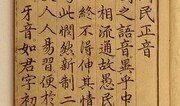 民正音
之語音異乎中
相流通故愚民
終不得伸其情
此憫然新制二
人人易習便於
牙音如君字初